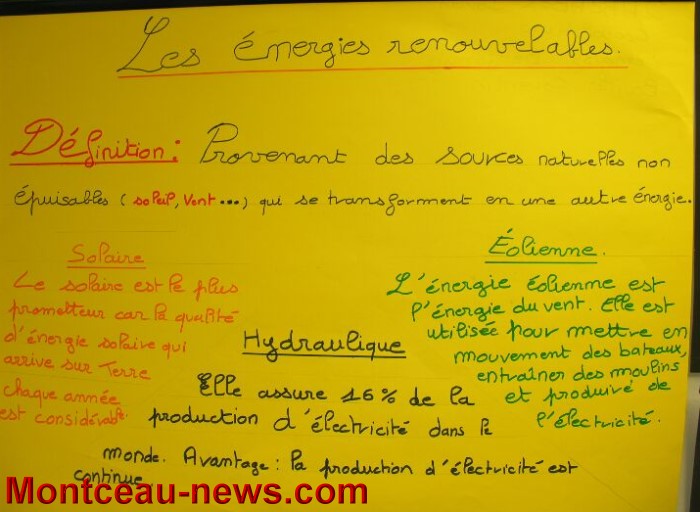 Les énergies renouvelables.
Définition : Provenant des sources naturelles non
épuisables (soleil, vent ...) qui se transforment en une autre énergie.
Solaire
Le solaire est le plus
prometteur car la qualité
d'énergie solaire qui
arrive sur Terre
chaque année
est considérable.
Éolienne.
L'énergie éolienne est
l'énergie du vent. Elle est
utilisée pour mettre en
mouvement des bateaux,
entraîner des moulins
et produire de
l'électricité.
Hydraulique
Elle assure 16% de la
production d'électricité dans le
monde. Avantage : la production d'électricité est
continue
Montceau-news.com